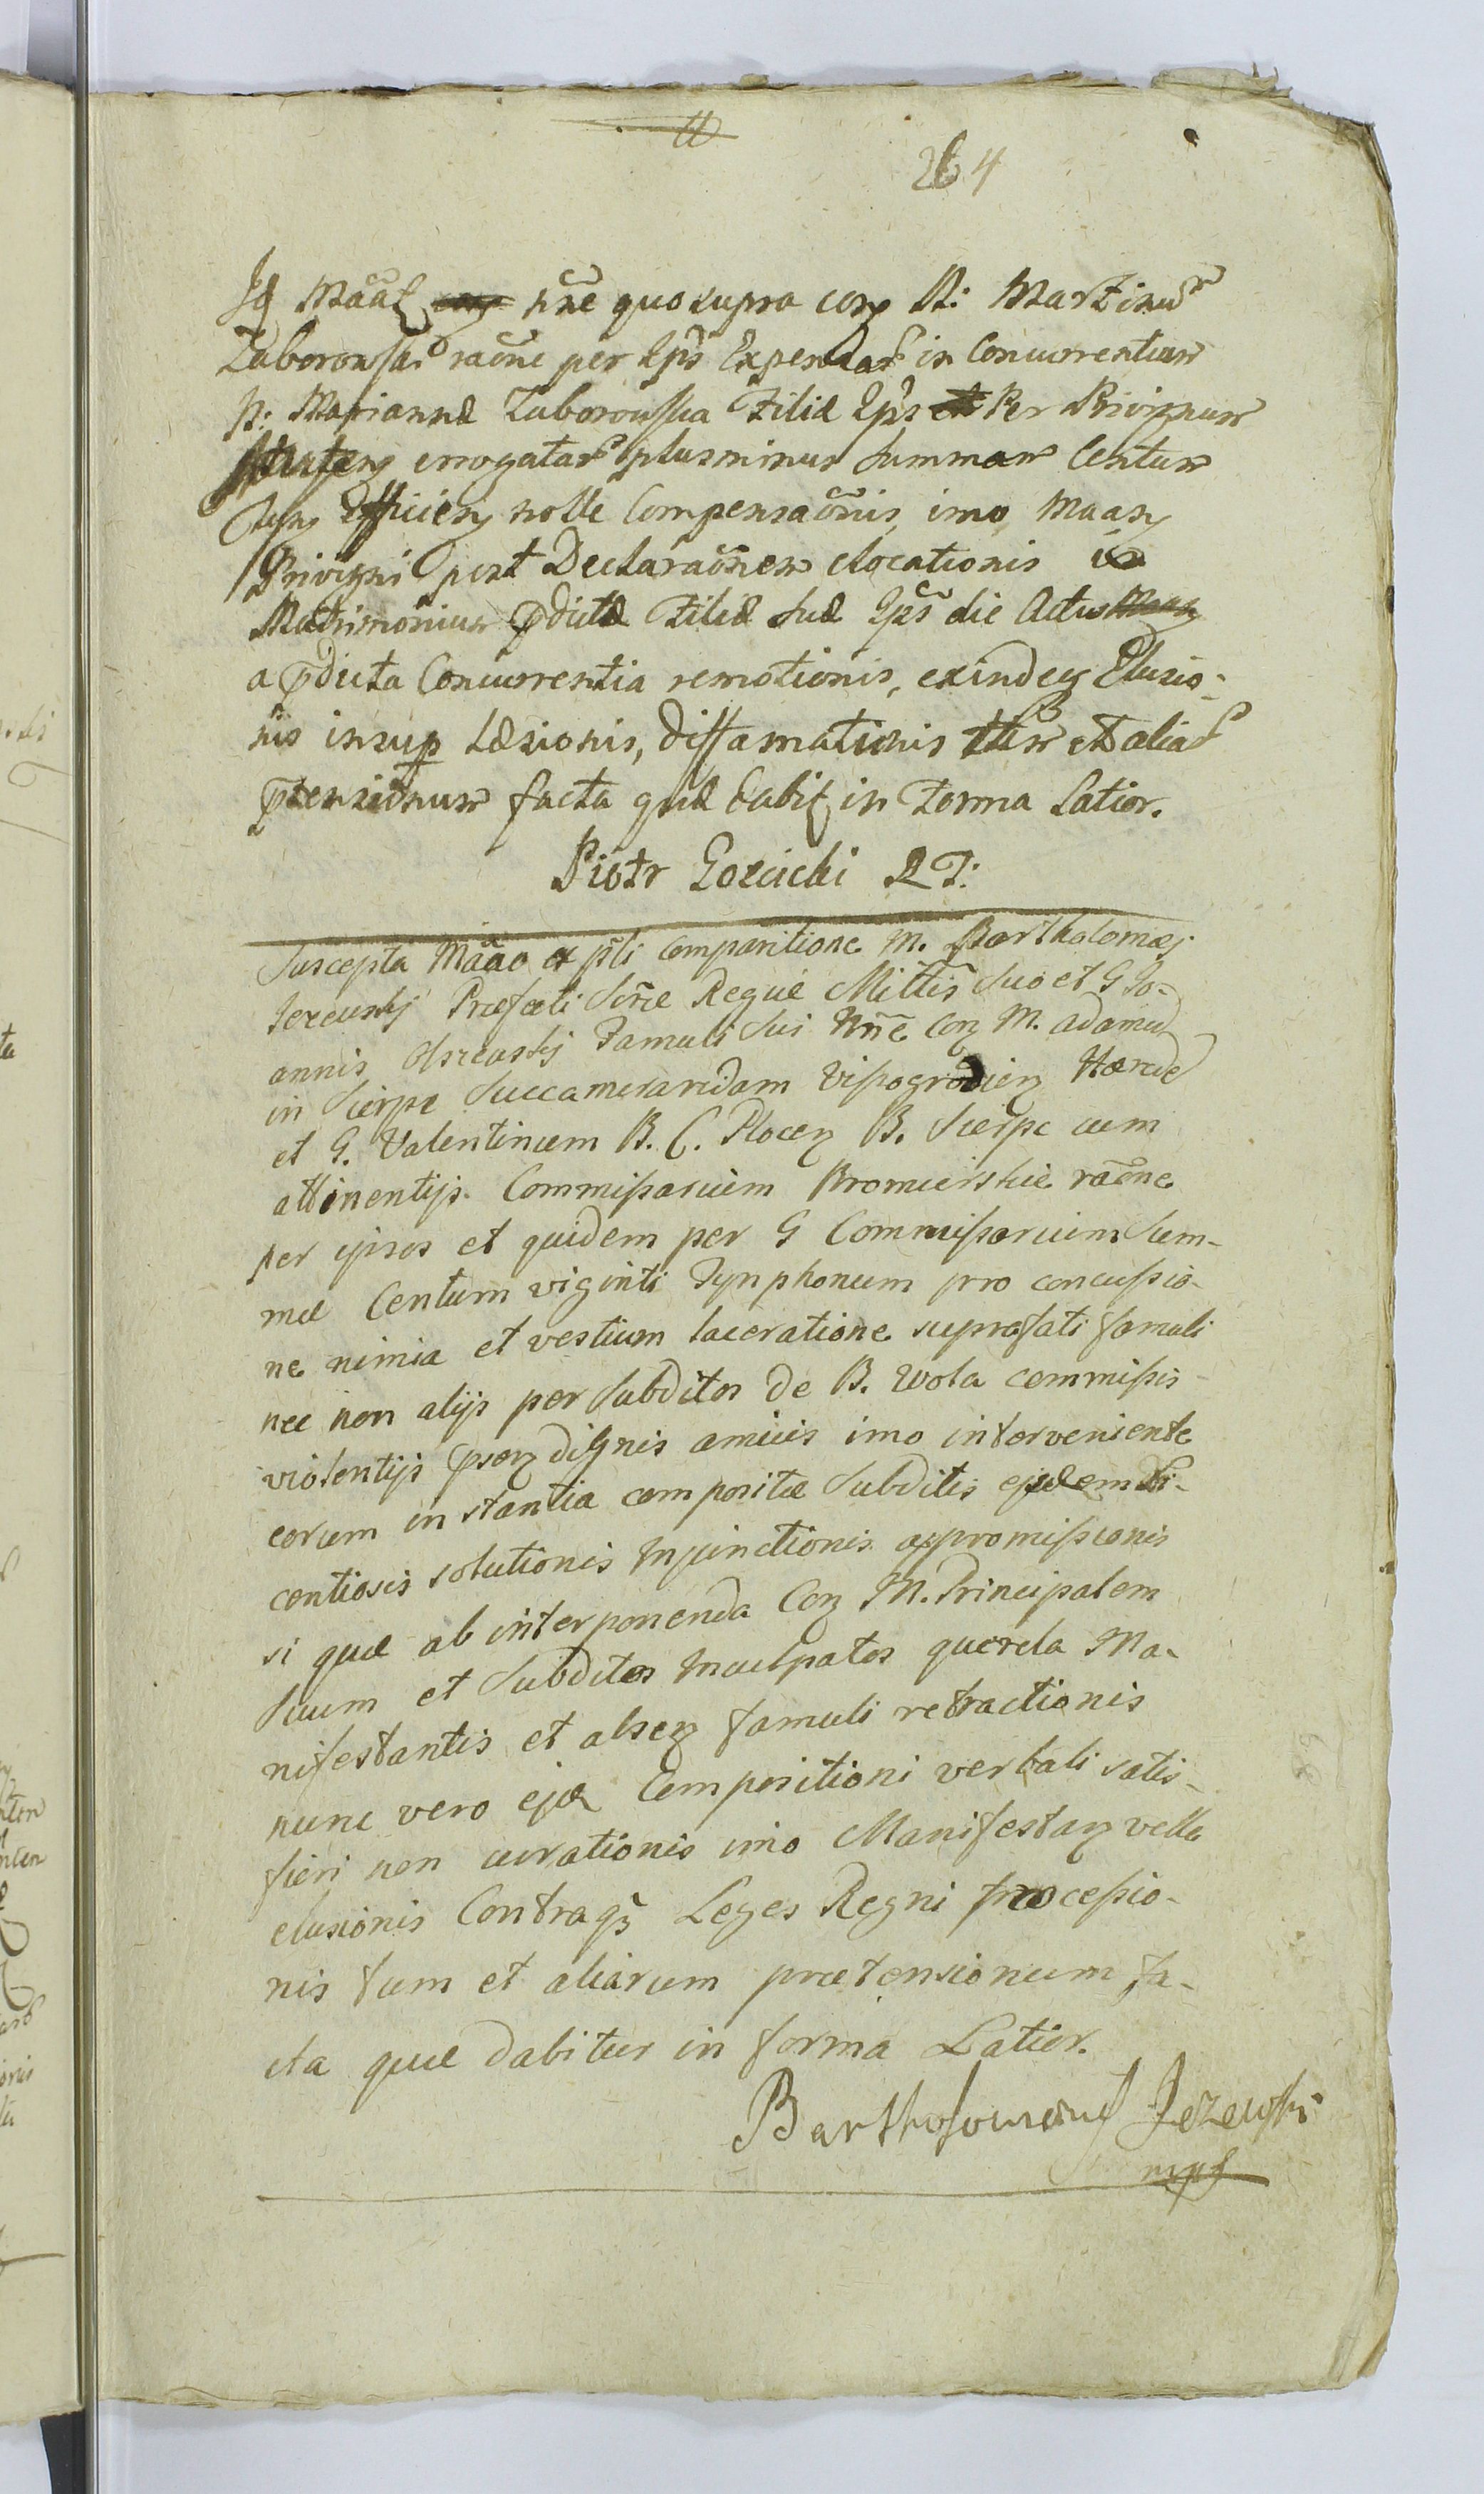 264
Id Māāt nñe quo supra con N: Martinum
Zaborowski raõne per Ips Expensar in Concurrentiam
N: Mariannæ Zaborowska Filiæ Ips Per Privignum
errogatar plus minus Summam Centum
Tynf Efficien nolle Compensaõnis, imo Maan
Privigni post Declaraõnem elocationis in
Matrimonium p̄dictæ Filiæ Suæ Ips die Actus
a p̄dicta Concurrentia remotionis, exindeq Elusio-
nis insup Læsionis, diffamationis tum et aliar
p̄tensionum facta quæ Dabit in Forma Latior.
Piotr Gozdicki
Suscepta Māāo ex p̄ti comparitione M. Bartholomæj
Jezewskj Præfecti Sertæ Regiæ Mittis Suo et G Jo-
annis Famuli Sui Nñe Con M. Adamum
in Sierpc Succameraridam Vissogrodien Hærede
et G. Valentinum B. C. Plocen B. Sierpc cum
attinentijs Commissarium Bromierskie raõne
per ipsos et quidem per G Commissarium Sum-
mæ Centum viginti Tynphonum pro concussio-
ne nimia et vestium laceratione suprafati famuli
nec non alijs per Subditos de B. Wola commissis
violentijs dignis amicis imo interveniente
eorum instantia compositæ Subditis ejusdem Li-
centiosis solutionis Injunctionis appromissionis
si quæ ab interponenda Con M. Principalem
Suum et Subditos Inculpatos querela Ma-
nifestantis et absen famuli retractionis
nunc vero ejd Compositioni verbali satis-
fieri non curationis imo Manifestan velle
elusionis Contraq Leges Regni processio-
nis tum et aliarum prætensionum fa-
cta quæ dabitur in forma Latior.
Bartholomæus Jezewski
mpp